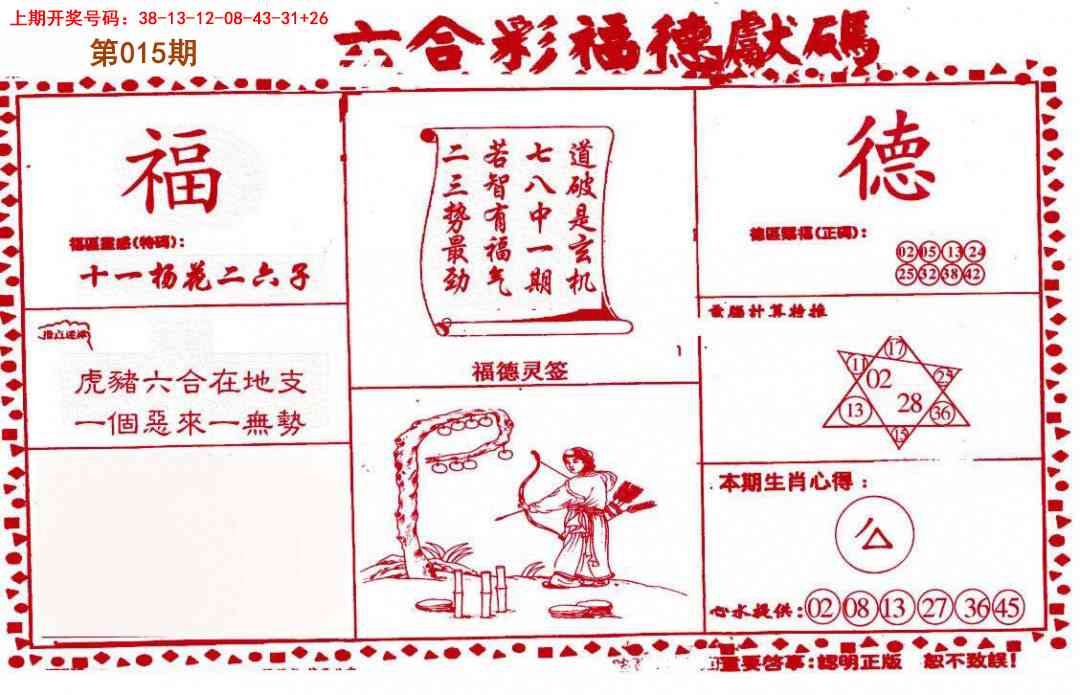 上期开奖号码：38-13-12-08-43-31+26
第015期
六合彩福德獻碼
福
福區靈感(特碼)：
十一杨花二六子
虎豬六合在地支
一個惡來一無勢
道破是玄机
七八中一期
若智有福气
二三势最劲
福德灵签
德
德區賜福(正碼)：
02 05 13 24
25 32 38 42
17
11 02 25
13 28 36
15
本期生肖心得：
心水提供：02 08 13 27 36 45
重要啓事：認明正版 恕不致誤！